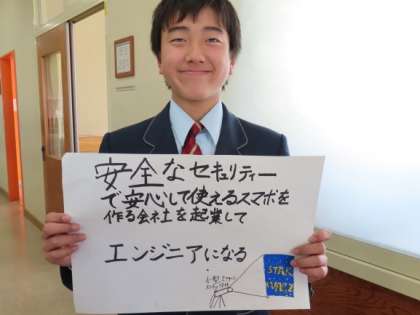 安全なセキュリティー
で安心して使えるスマホを
作る会社を起業して
エンジニアになる
STAR